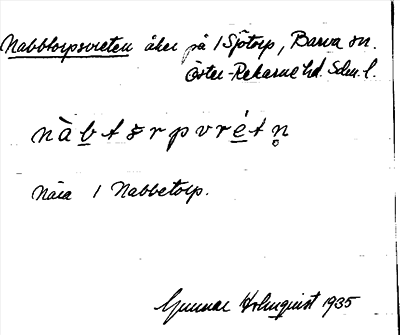 Nabbtorpsvreten åker på 1 Sjötorp, Barva sn.
Öster-Rekarne hd. Sdm. l.
nàbtsrpvrétn̥
Nära 1 Nabbetorp.
Gunnar Holmquist 1935